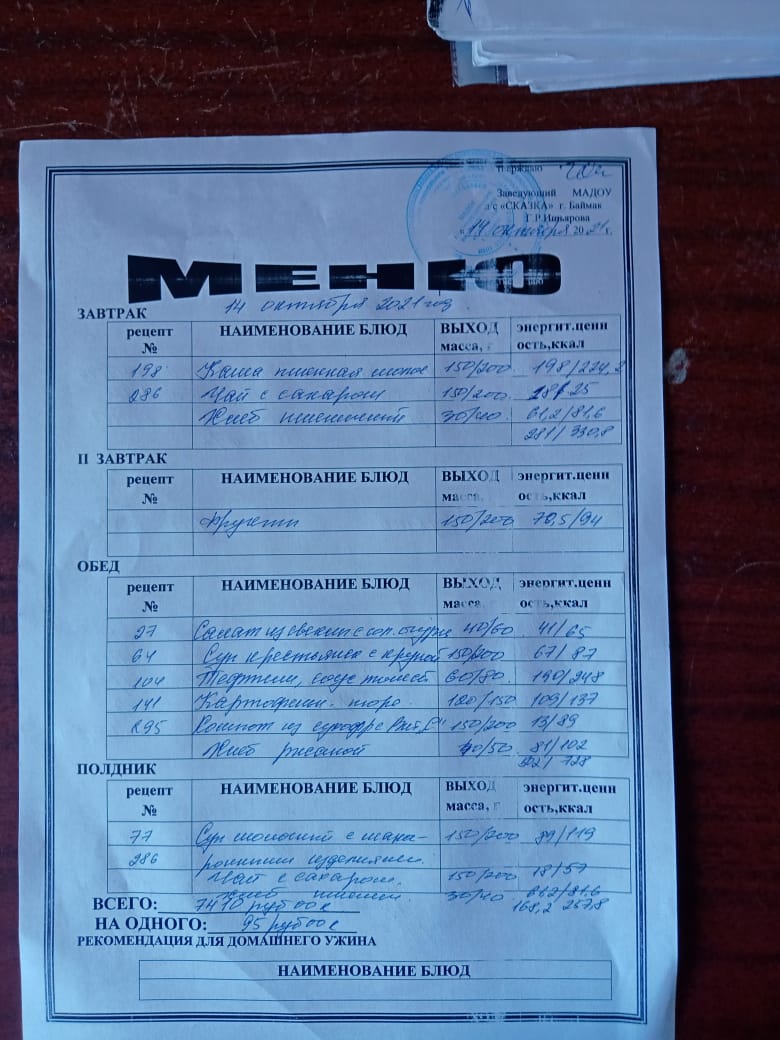 Заведующий МАДОУ
д/с «СКАЗКА» г. Баймак
Г.Р.Ишьярова
«14» октября 2021г.
МЕНЮ
14 октября 2021 год.
ЗАВТРАК
рецепт № НАИМЕНОВАНИЕ БЛЮД ВЫХОД масса, г энергит.ценн ость,ккал
198 Каша пшенная молоч 150/200 198/224,2
286 Чай с сахаром 150/200 25
Хлеб пшеничный 30/40 61,2/81,6
281/330,8
II ЗАВТРАК
рецепт № НАИМЕНОВАНИЕ БЛЮД ВЫХОД масса, энергит.ценн ость,ккал
Фрукты 150/200 70,5/94
ОБЕД
рецепт № НАИМЕНОВАНИЕ БЛЮД ВЫХОД масса, г энергит.ценн ость,ккал
27 Салат из свеж и с сол. огурц 40/60 41/65
64 Суп крестьянск с крупой 150/200 67/87
104 Тефтели, соус томат 60/80 190/248
141 Картофельн. пюре. 120/150 109/137
295 Компот из сухофр с Вит „С" 150/200 13/89
Хлеб ржаной 40/50 81/102
728
ПОЛДНИК
рецепт № НАИМЕНОВАНИЕ БЛЮД ВЫХОД масса, г энергит.ценн ость,ккал
77 Суп молочный с мака- 150/200 89/119
286 ронными изделиями.
Чай с сахаром. 150/200 18/57
Хлеб пшенич 30/40 61,2/81,6
168,2 257,8
ВСЕГО: 7410 руб 00 к
НА ОДНОГО: 95 руб 00 к
РЕКОМЕНДАЦИЯ ДЛЯ ДОМАШНЕГО УЖИНА
НАИМЕНОВАНИЕ БЛЮД